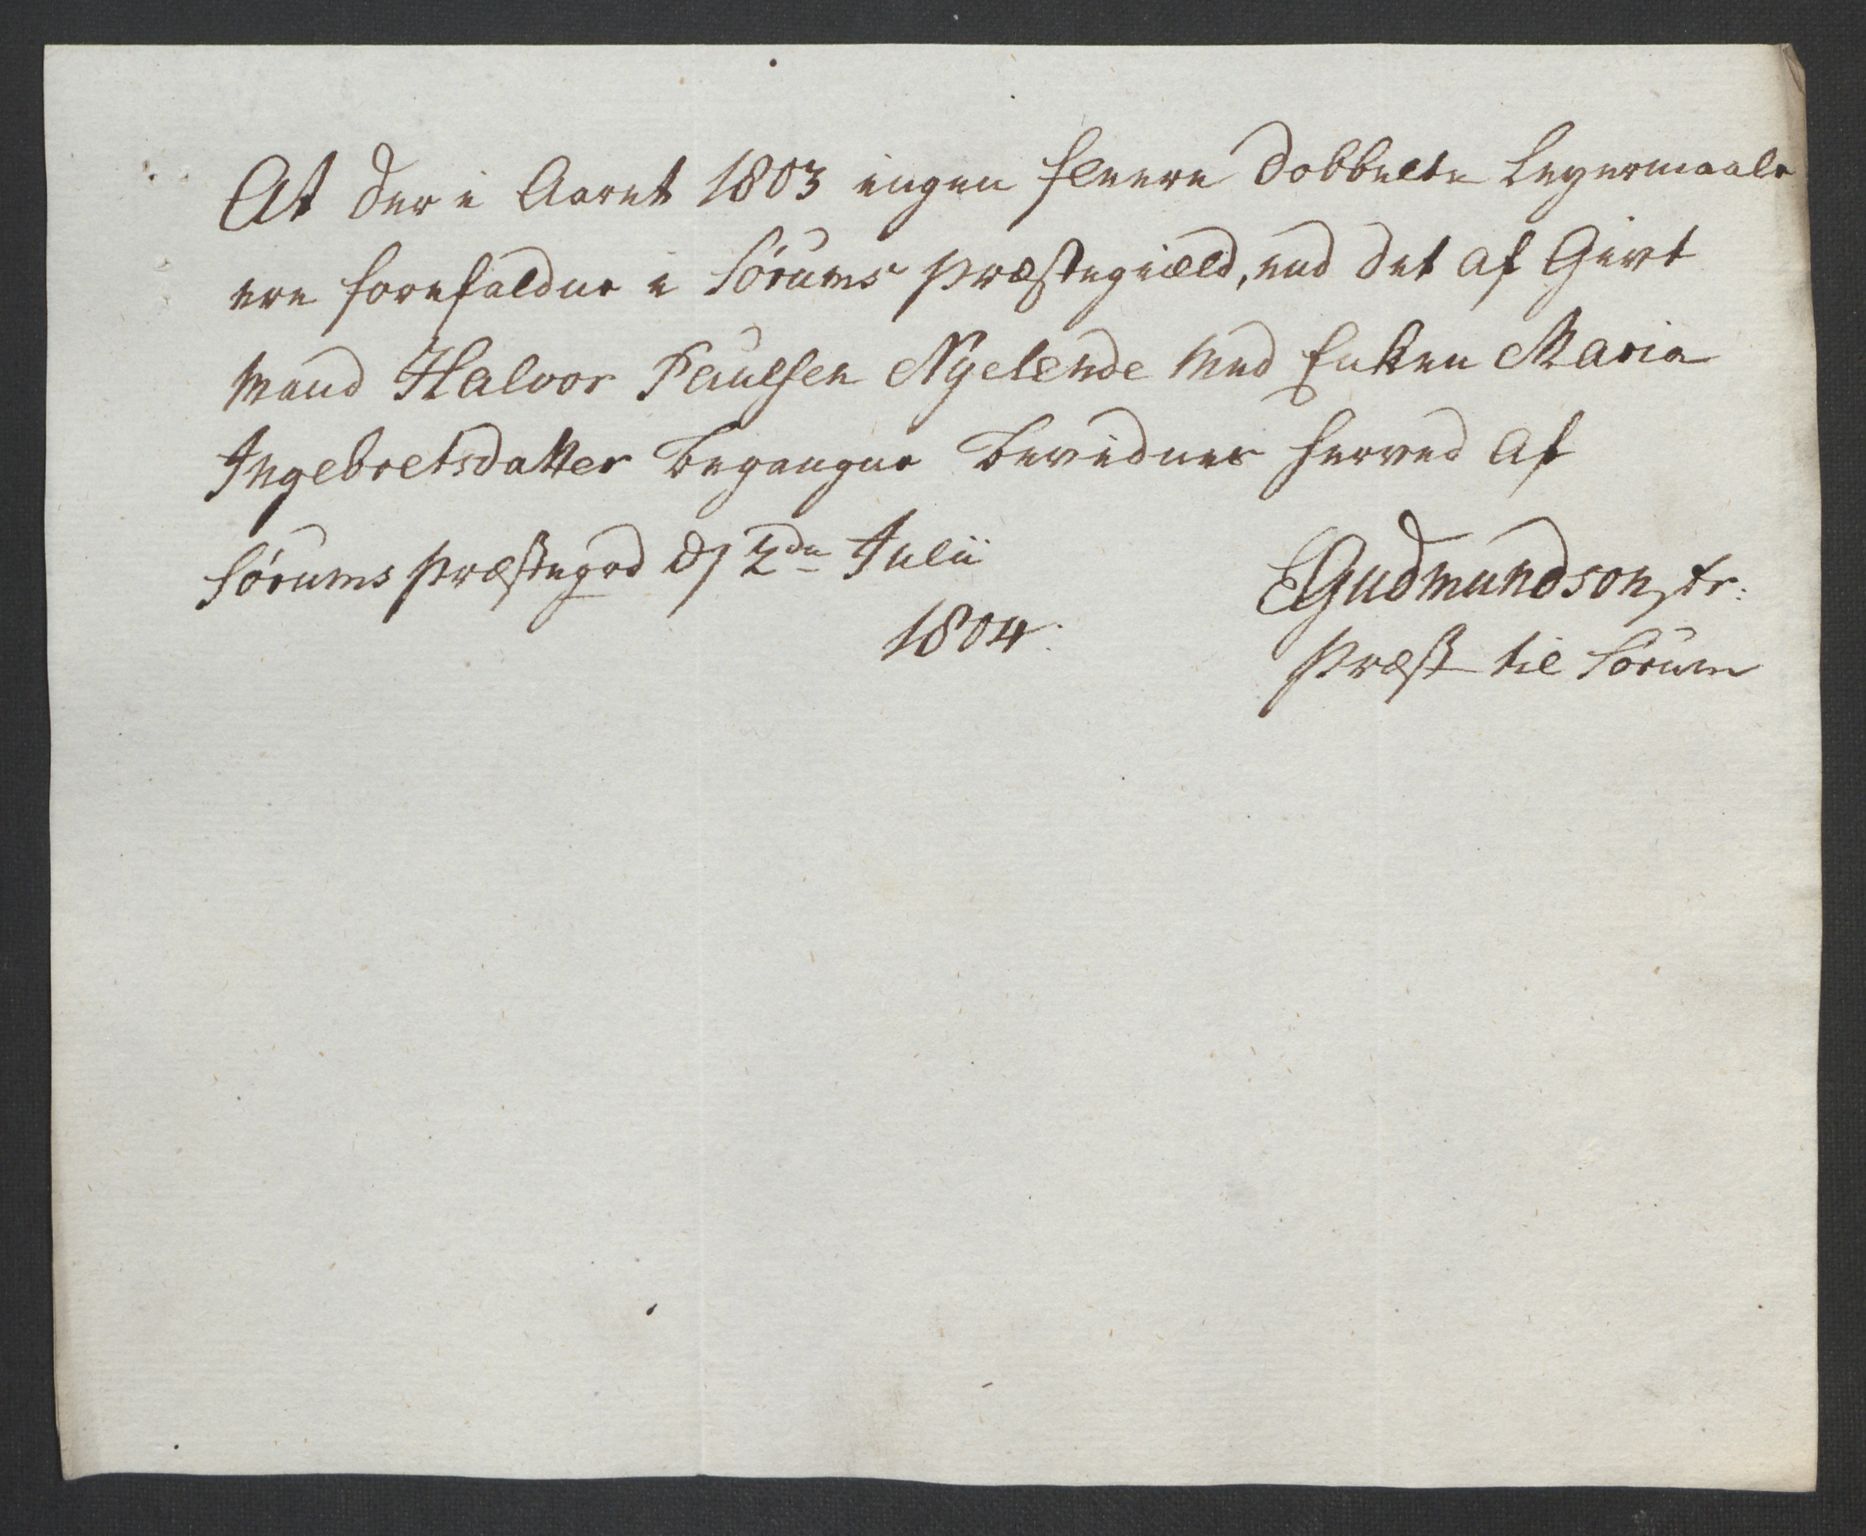 At der i Aaret 1803 ingen fleere dobbelte Leyermaale
ere forefaldne i Sørums Præstegield, end det af Givt
Mand Halvor Paulsen Nyelende med Enken Maria
Ingebretsdatter begangne bevidnes herved af
Sørums Præstegrd d/ 2den Julii
1804.
EGudmundson,
Præst til Sørum